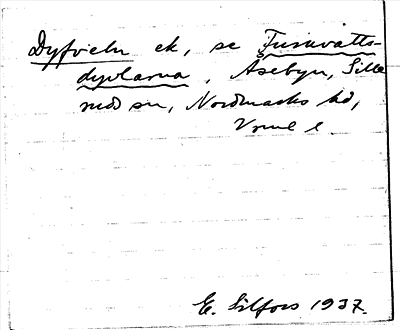 Dyfveln ek, se Furuvatts-
dyvlarna, Åsebyn, Sille
ruds sn, Nordmarks hd,
Vrml l.
E. Lilfors 1937.